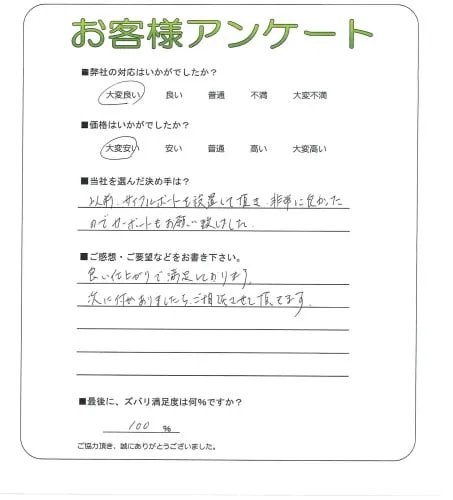 お客様アンケート
■弊社の対応はいかがでしたか？
大変良い 良い 普通 不満 大変不満
■価格はいかがでしたか？
大変安い 安い 普通 高い 大変高い
■当社を選んだ決め手は？
以前、サイクルポートを設置して頂き、非常に良かった
のでカーポートもお願い致しました。
■ご感想・ご要望などをお書き下さい。
良い仕上がりで満足しております。
次に何かありましたら、ご相談させて頂きます。
■最後に、ズバリ満足度は何%ですか？
100 %
ご協力頂き、誠にありがとうございました。